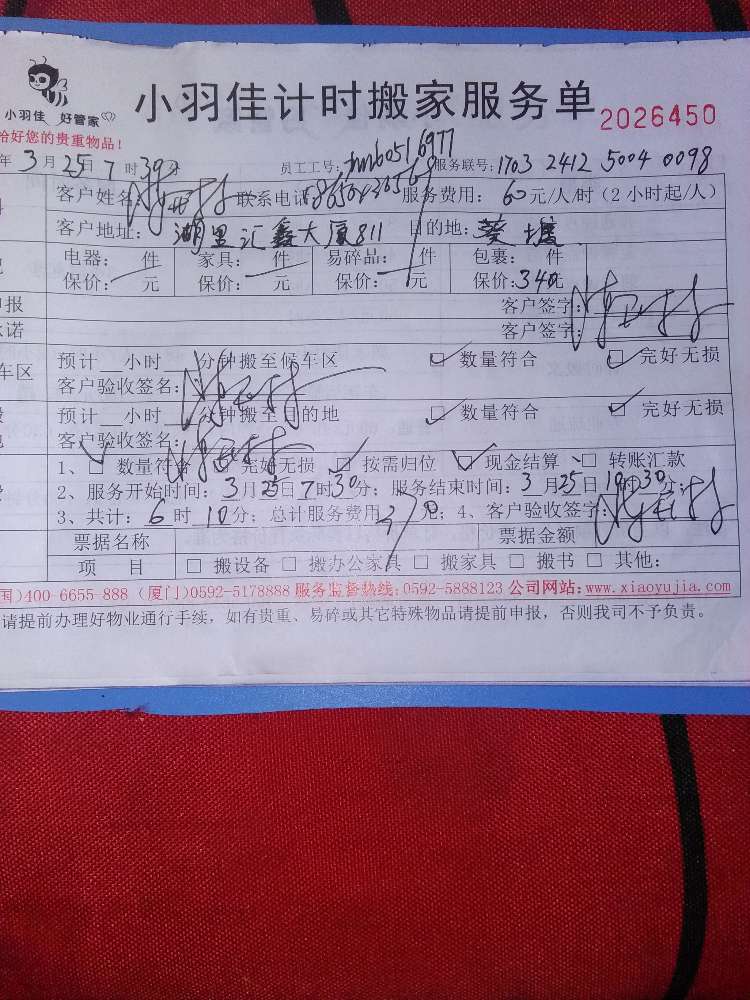 小羽佳 好管家
小羽佳计时搬家服务单 2026450
您的贵重物品！
年3月25日7时30分 员工工号： 服务联号：1703 2412 5004 0098
客户姓名： 联系电话 服务费用：60元/人/时（2小时起/人）
客户地址：湖里汇鑫大厦811 目的地：葵塘
电器： 件 家具： 件 易碎品： 件 包裹： 件
保价： 元 保价： 元 保价： 元 保价：340元
申报 客户签字：
承诺 客户签字：
车区 预计__小时__分钟搬至候车区 □ 数量符合 □ 完好无损
客户验收签名：
预计__小时__分钟搬至目的地 □ 数量符合 □ 完好无损
客户验收签名：
1、□ 数量符合 □ 完好无损 □ 按需归位 □ 现金结算 □ 转账汇款
2、服务开始时间：3月25日7时30分；服务结束时间：3月25日 时30分；
3、共计：6时10分；总计服务费用 ；4、客户验收签字：
票据名称 票据金额
项 目 □ 搬设备 □ 搬办公家具 □ 搬家具 □ 搬书 □ 其他：
国)400-6655-888（厦门)0592-5178888 服务监督热线：0592-5888123 公司网站：www.xiaoyujia.com
请提前办理好物业通行手续，如有贵重、易碎或其它特殊物品请提前申报，否则我司不予负责。